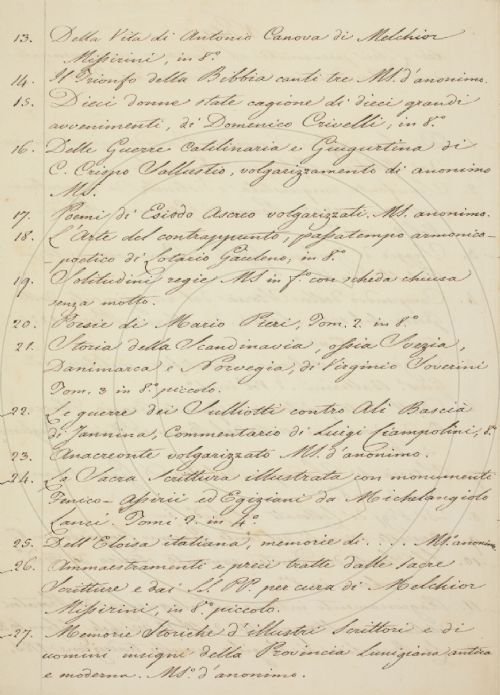 13. Della Vita di Antonio Canova di Melchior
Missirini, in 8.°
14. Il Trionfo della Bibbia canti tre MS. d'anonimo.
15. Dieci donne state cagione di dieci grandi
avvenimenti, di Domenico Crivelli, in 8.°
16. Delle Guerre Catilinaria e Giugurtina di
C. Crispo Sallustio, volgarizzamento di anonimo
MS.
17. Poemi di Esiodo Ascreo volgarizzati. MS. anonimo.
18. L'Arte del contrappunto, passatempo armonico-
-poetico di Lotario in 8.°
19. Solitudini regie MS in f.° con scheda chiusa
senza motto.
20. Poesie di Mario Pieri, Tom. 2. in 8.°
21. Storia della Scandinavia, ossia Svezia,
Danimarca e Norvegia, di Virginio Soncini
Tom. 3 in 8.° piccolo.
22. Le guerre dei Sulliotti contro Ali Bascià
di Jannina, Commentario di Luigi Ciampolini, 8.°
23. Anacreonte volgarizzato MS. d'anonimo.
24. La Sacra Scrittura illustrata con monumenti
Fenico-Assirii ed Egiziani da Michelangiolo
Lanci. Tomi 2. in 4.°
25. Dell'Eloisa italiana, memorie di . . . . MS.° anonimo
26. Ammaestramenti e preci tratte dalle sacre
Scritture e dai SS. PP. per cura di Melchior
Missirini, in 8.° piccolo.
27. Memorie Storiche d'illustri Scrittori e di
uomini insigni della Provincia Lunigiana antica
e moderna. MS.° d'anonimo.